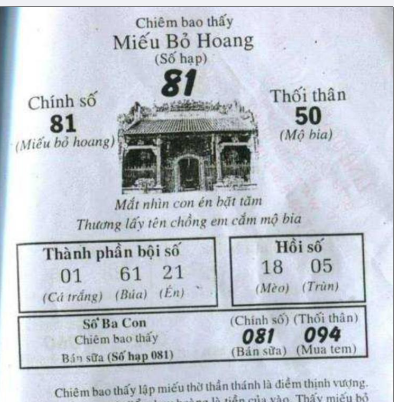 Chiêm bao thấy
Miếu Bỏ Hoang
(Số hạp)
81
Chính số
81
(Miếu bỏ hoang)
Thối thân
50
(Mộ bia)
Mắt nhìn con én bặt tăm
Thương lấy tên chồng em cắm mộ bia
Thành phần bội số
01 61 21
(Cá trắng) (Búa) (Én)
Hồi số
18 05
(Mèo) (Trùn)
Số Ba Con
Chiêm bao thấy
Bán sữa (Số hạp 081)
(Chính số) (Thối thân)
081 094
(Bán sữa) (Mua tem)
Chiêm bao thấy lập miếu thờ thần thánh là điềm thịnh vượng.
là tiền của vào. Thấy miếu bỏ